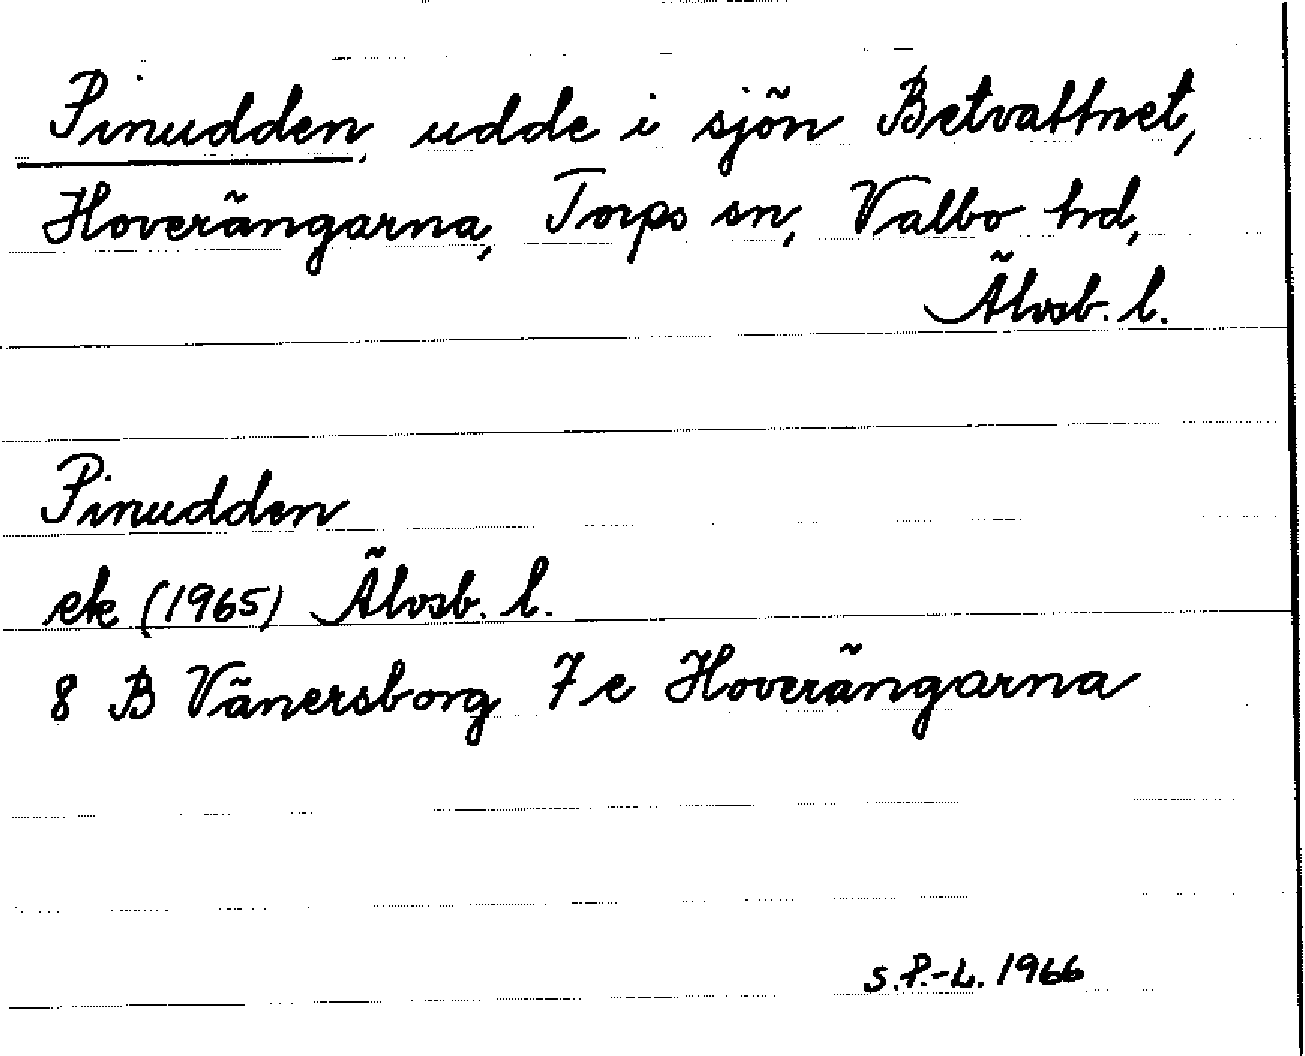 Pinudden, udde i sjön Betvattnet,
Hoverängarna, Torps sn, Valbo hd,
Älvsb. l.
Pinudden
ek (1965) Älvsb. l.
8 B Vänersborg 7 e Hoverängarna
S.P.-L. 1966